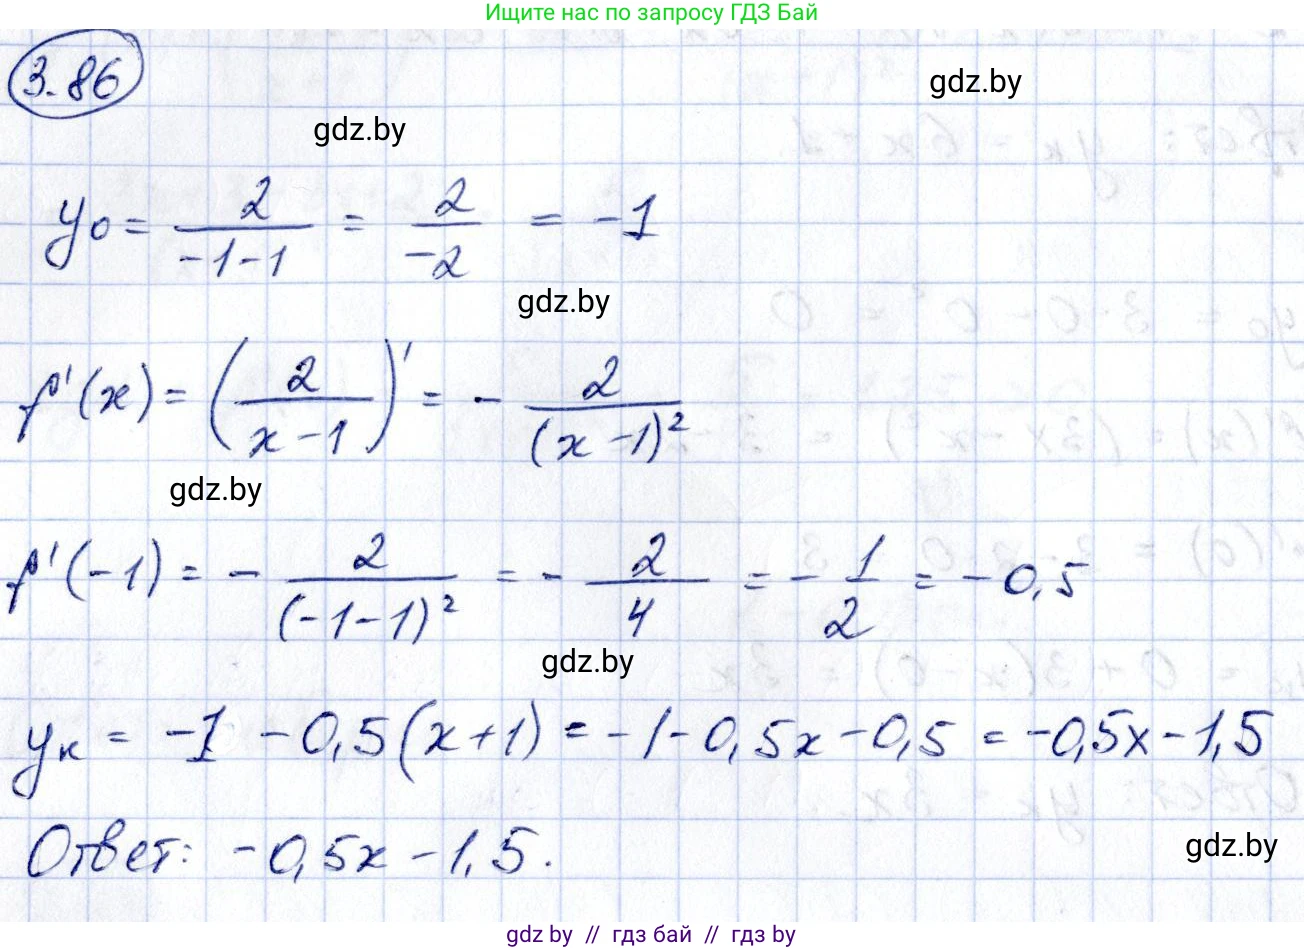 Ищите нас по запросу ГДЗ Бай
3.86
gdz.by
gdz.by
y₀ = 2/(-1-1) = 2/(-2) = -1
gdz.by
f'(x) = (2/(x-1))' = - 2/(x-1)²
gdz.by
f'(-1) = - 2/(-1-1)² = - 2/4 = - 1/2 = -0,5
gdz.by
yк = -1 - 0,5(x+1) = -1-0,5x-0,5 = -0,5x-1,5
Ответ: -0,5x-1,5.
gdz.by
gdz by // гдз бай // гдз by